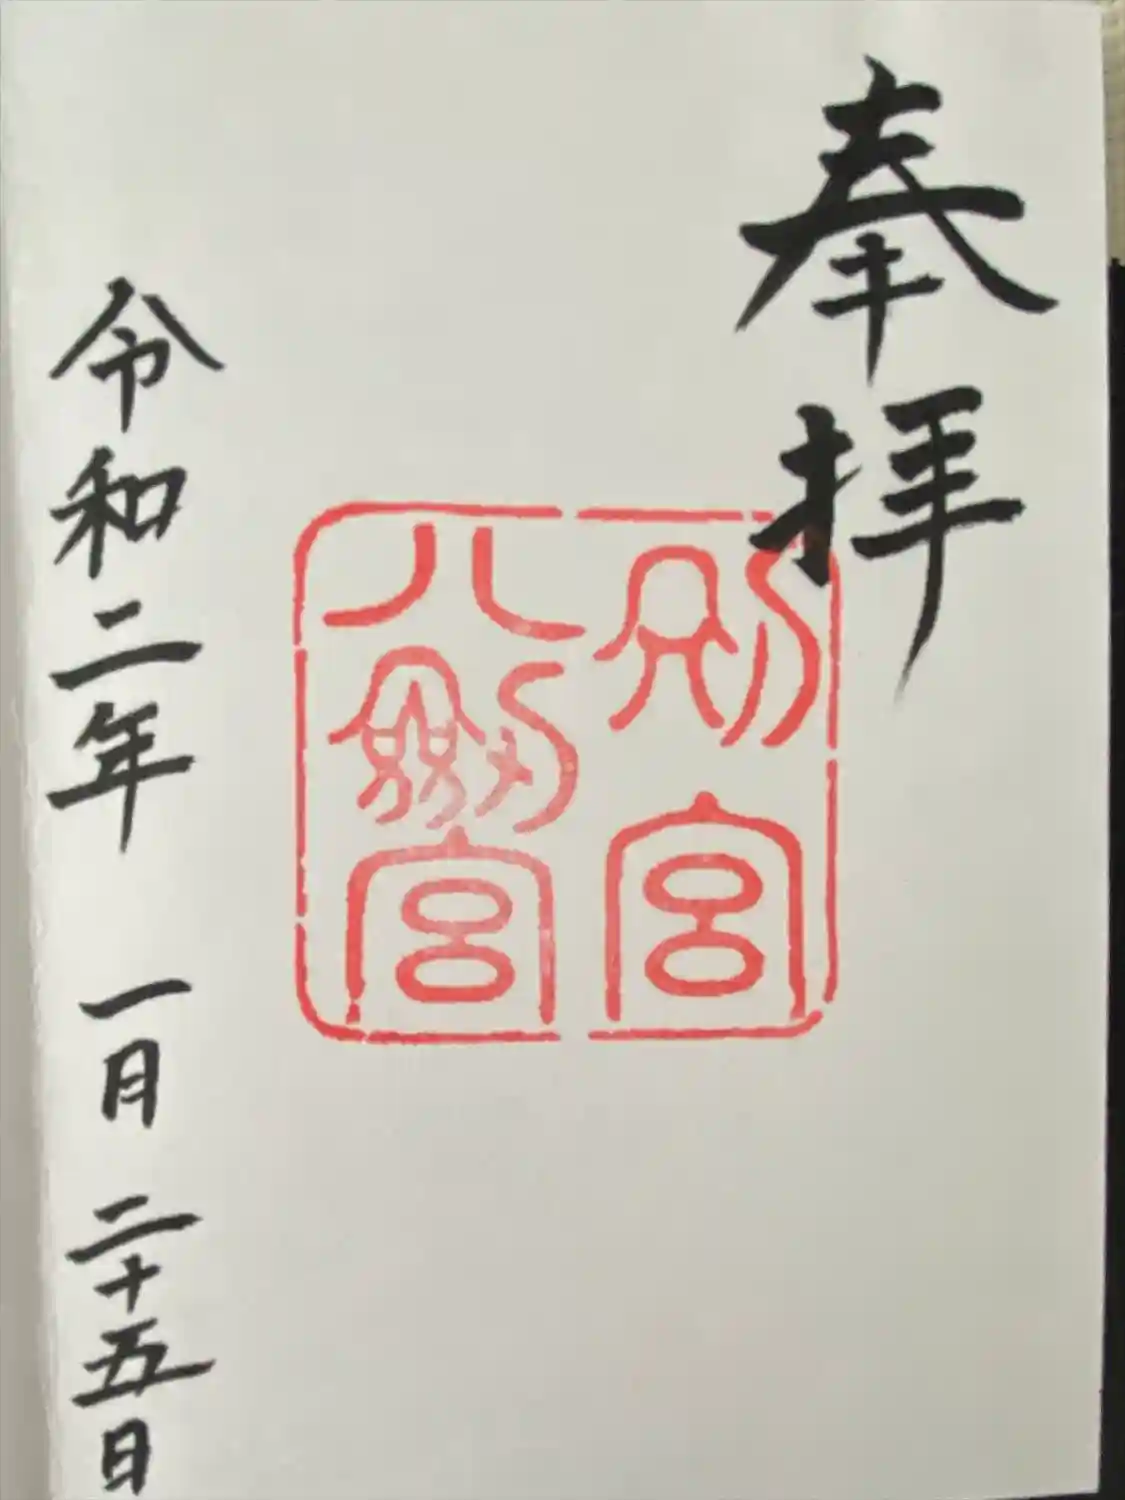 奉拝
別宮
八劔宮
令和二年 一月 二十五日